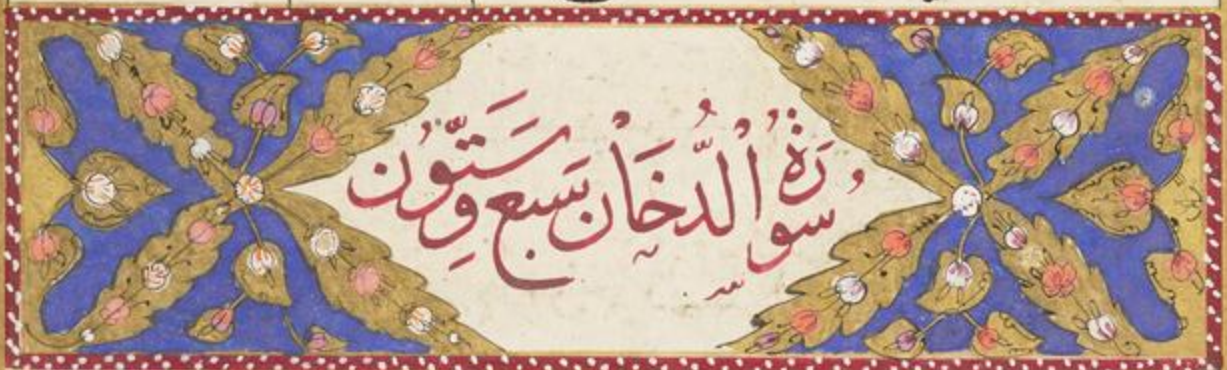 سُورَةُ الدُّخَانِ سَبع وَسِتُّونَ